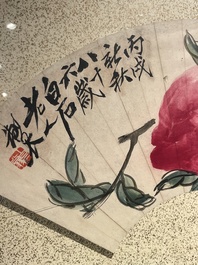 丙戌
新秋
八十
六歲
白石
老人